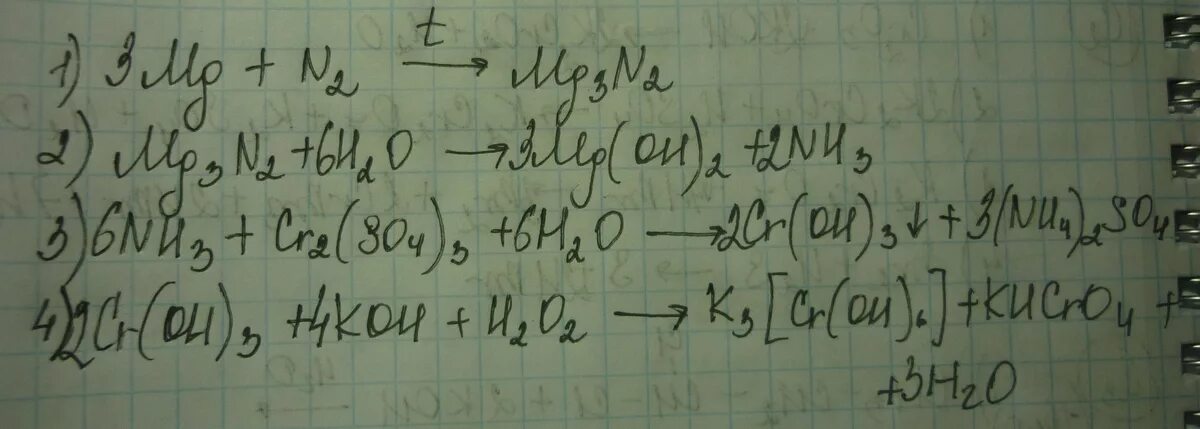 t
1) 3Mg + N₂ → Mg₃N₂
2) Mg₃N₂ + 6H₂O → 3Mg(OH)₂ + 2NH₃
3) 6NH₃ + Cr₂(SO₄)₃ + 6H₂O → 2Cr(OH)₃↓ + 3(NH₄)₂SO₄
4) 2Cr(OH)₃ + 4KOH + H₂O₂ → K₃[Cr(OH)₆] + KHCrO₄ +
+ 3H₂O